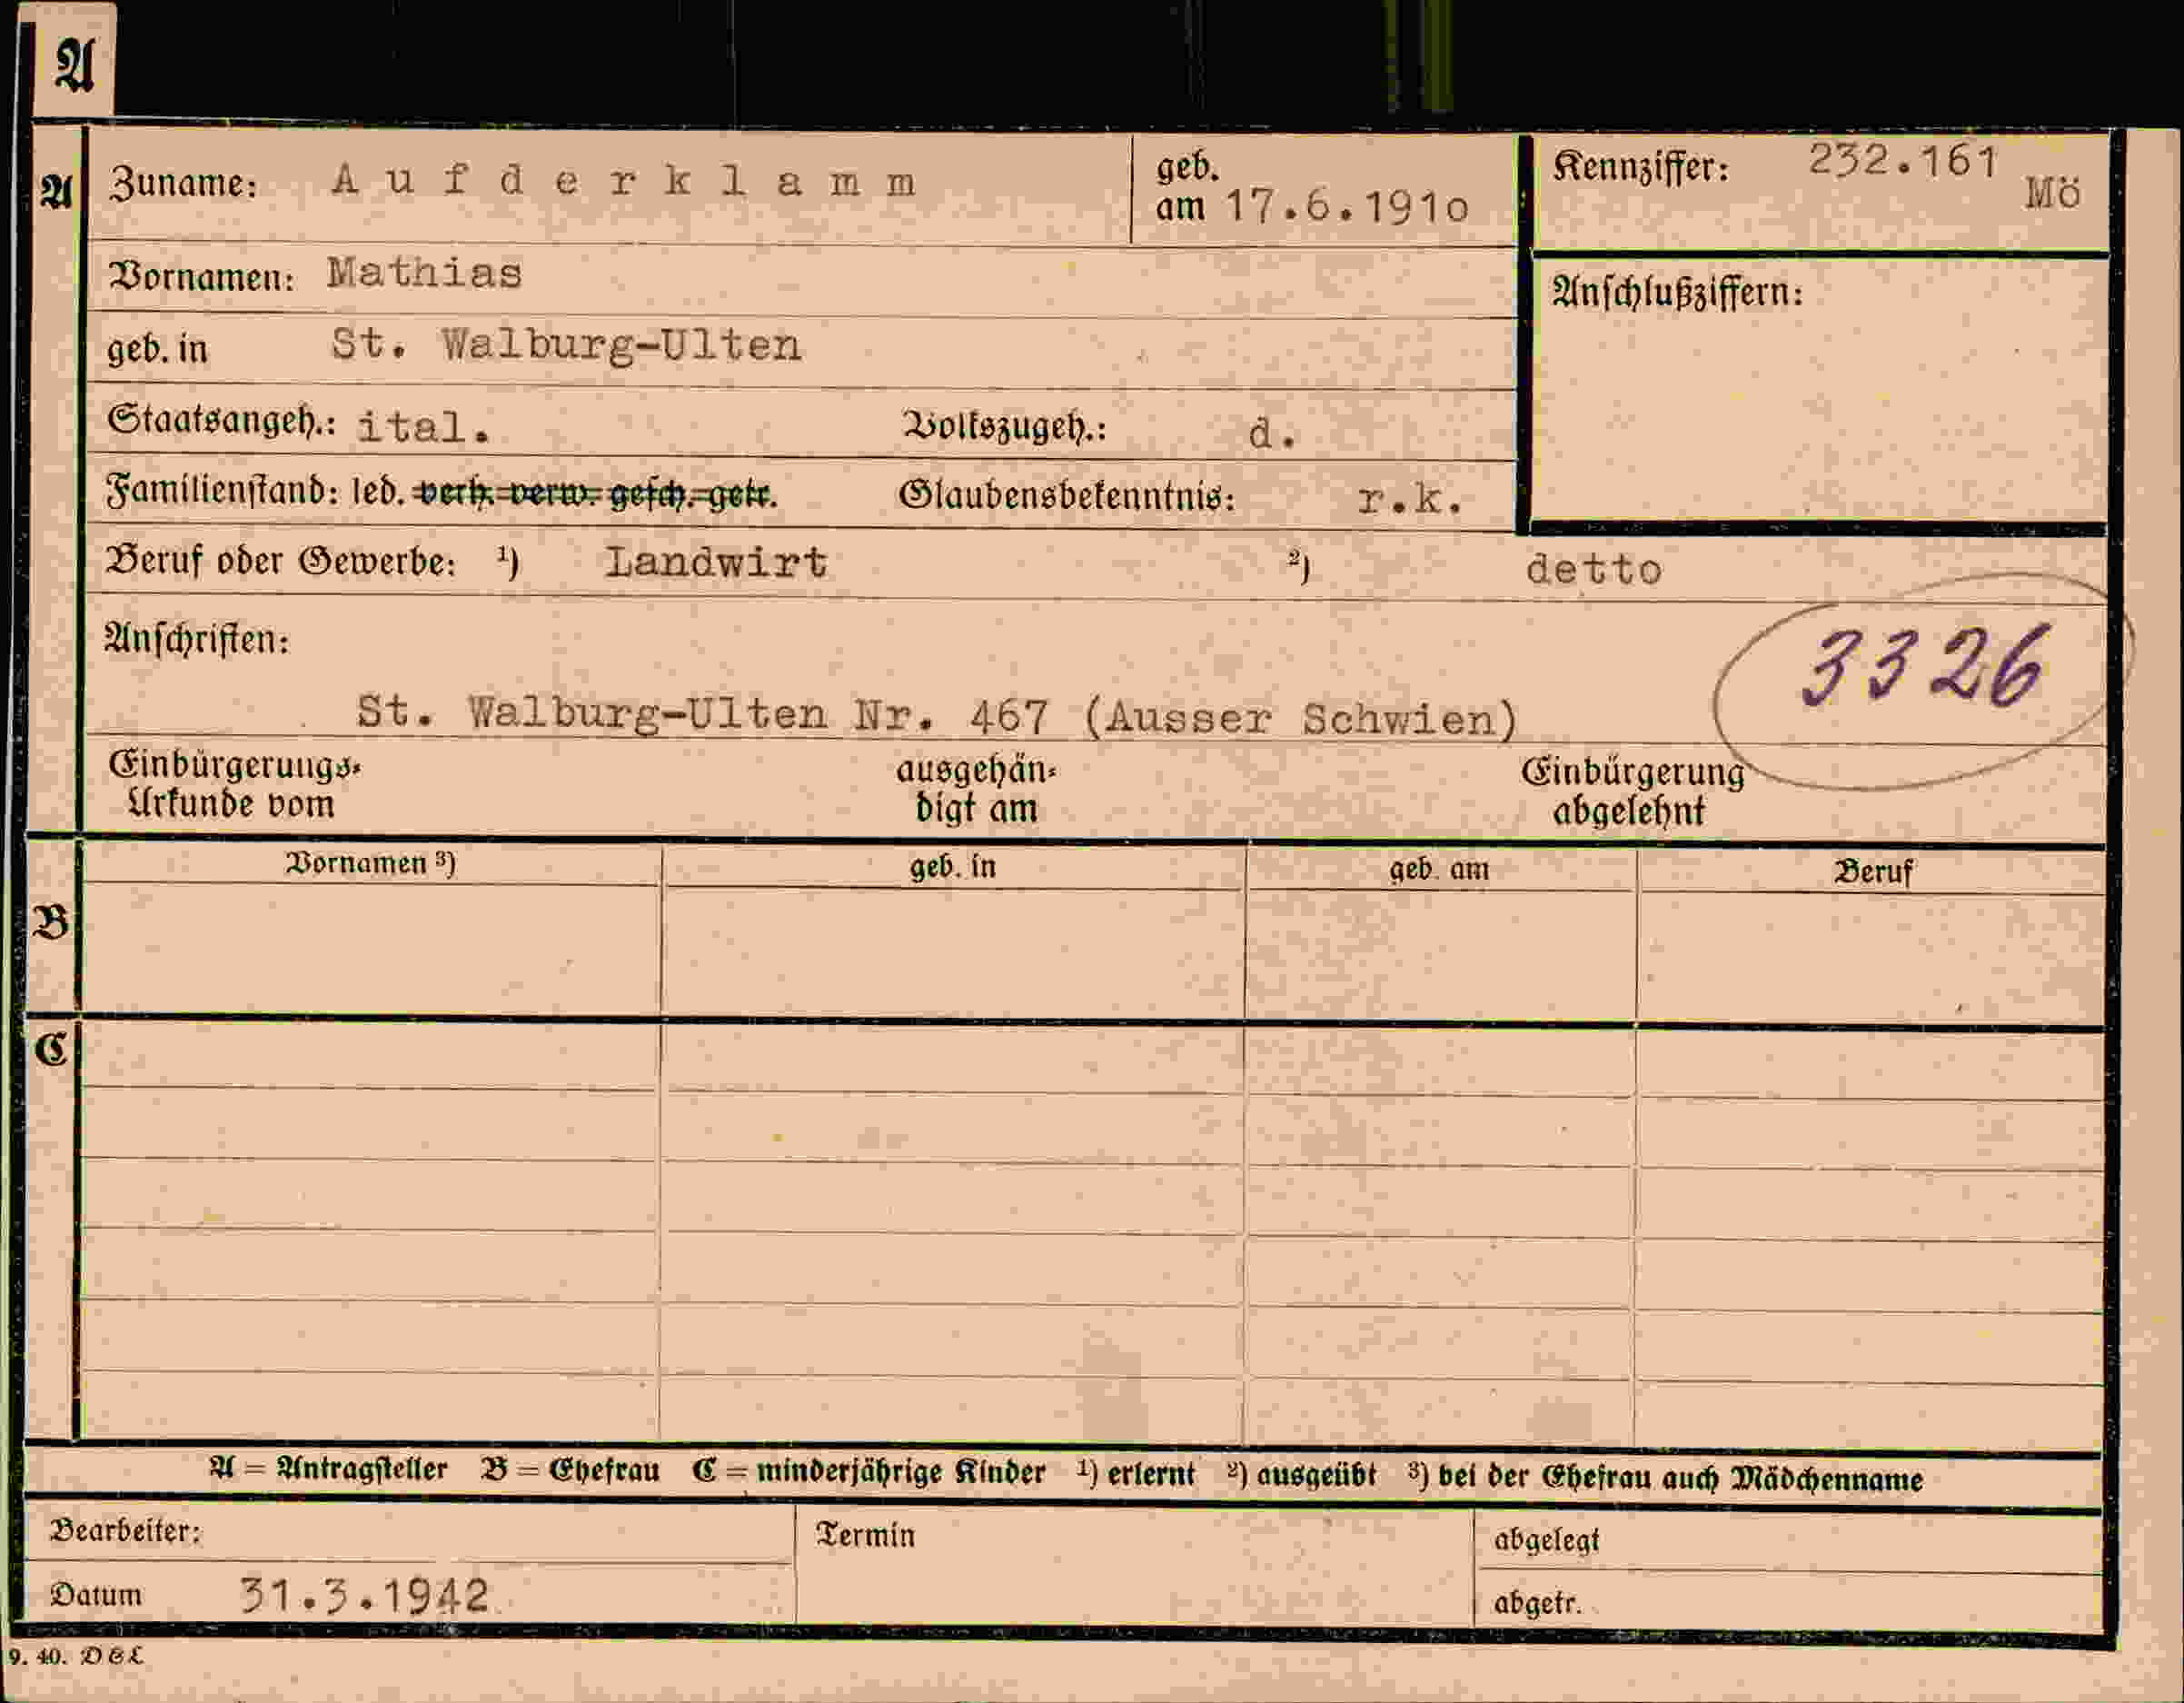 A
A Zuname: A u f d e r k l a m m geb. am 17.6.191o Kennziffer: 232.161 Mö
Vornamen: Mathias Anschlußziffern:
geb. in St. Walburg-Ulten
Staatsangeh.: ital. Volkszugeh.: d.
Familienstand: led. verh. verw. gesch. getr. Glaubensbekenntnis: r.k.
Beruf oder Gewerbe: ¹) Landwirt ²) detto
Anschriften: 3326
St. Walburg-Ulten Nr. 467 (Ausser Schwien)
Einbürgerungs- ausgehän- Einbürgerung
Urkunde vom digt am abgelehnt
Vornamen ³) geb. in geb. am Beruf
B
C
A = Antragsteller B = Ehefrau C = minderjährige Kinder ¹) erlernt ²) ausgeübt ³) bei der Ehefrau auch Mädchenname
Bearbeiter: Termin abgelegt
Datum 31.3.1942 abgetr.
9. 40. DBL